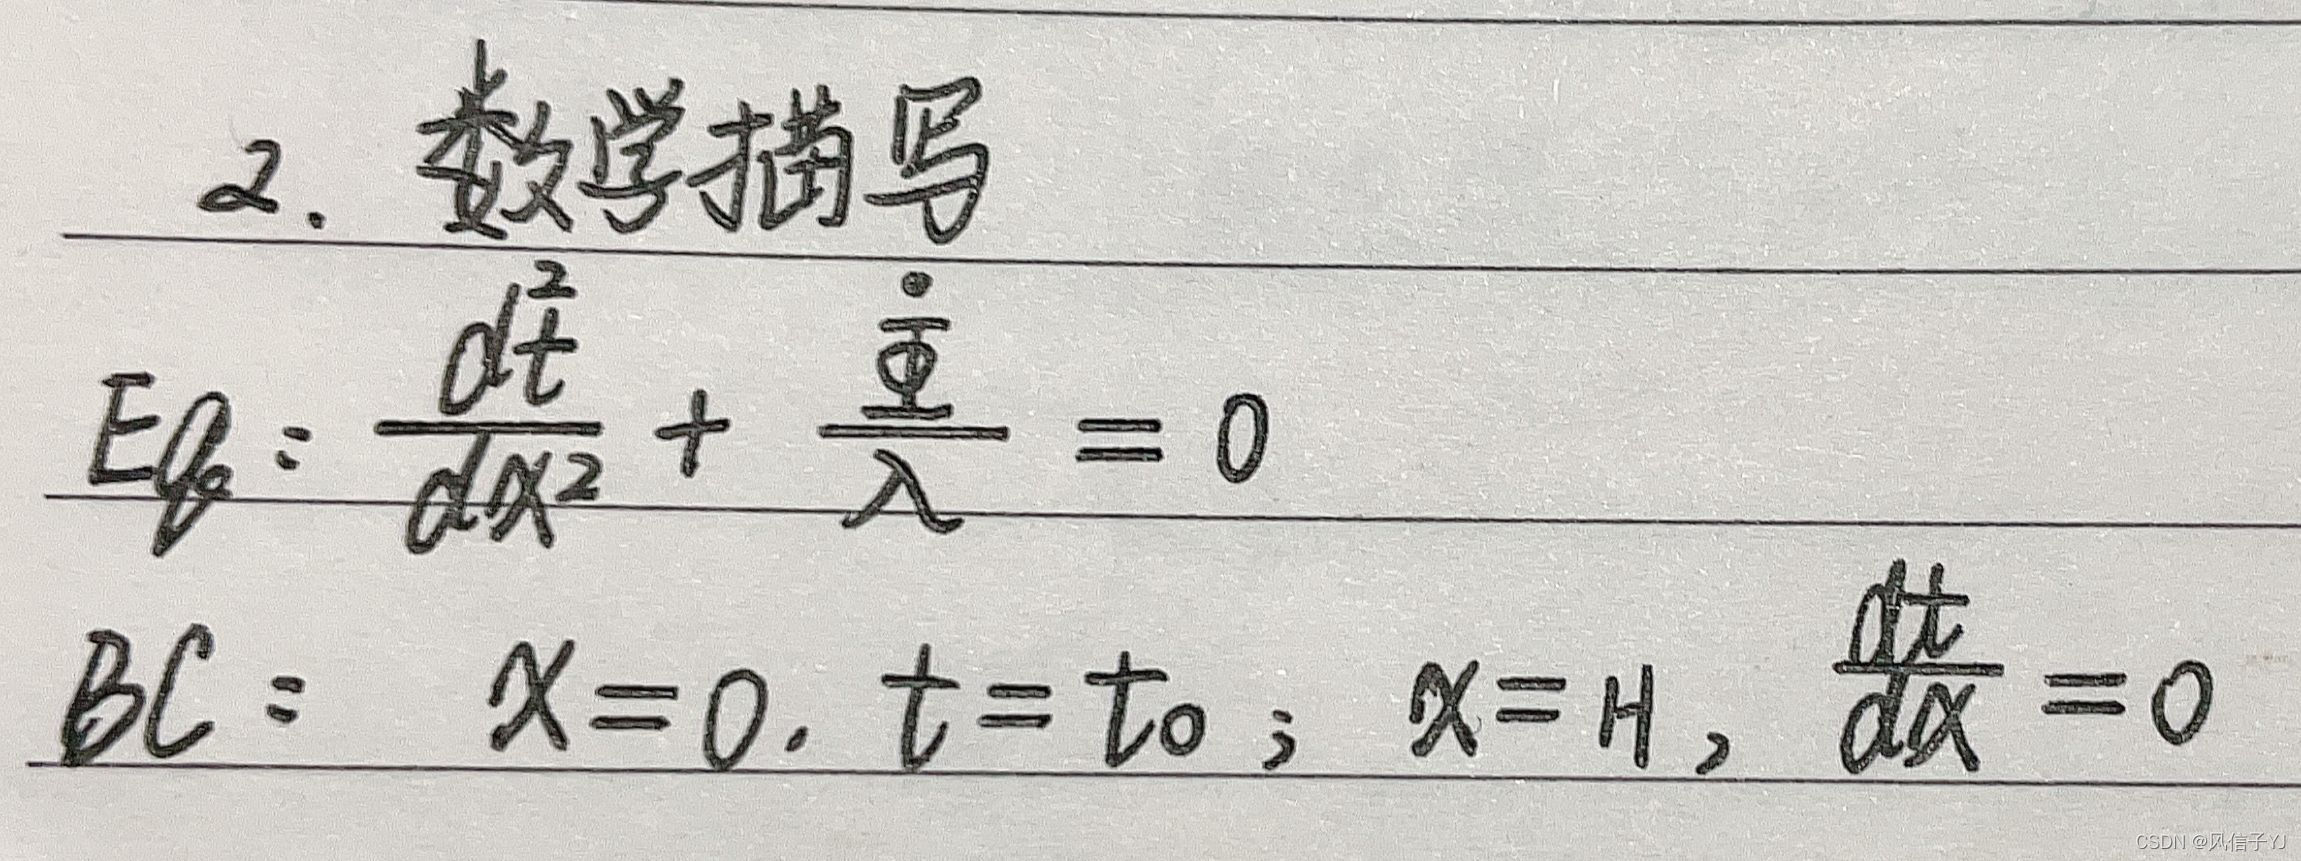 2. 数学描写
Eq: d²t/dx² + Φ̇/λ = 0
BC: x=0. t=t₀; x=H, dt/dx=0
CSDN @风信子YJ